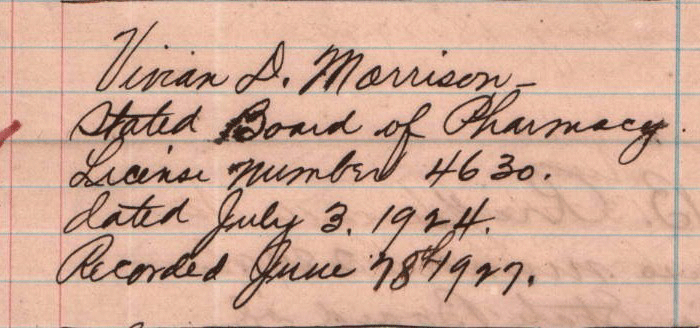 Vivian D. Morrison-
Stated Board of Pharmacy.
License number 4630.
dated July 3. 1924.
Recorded June 1927.